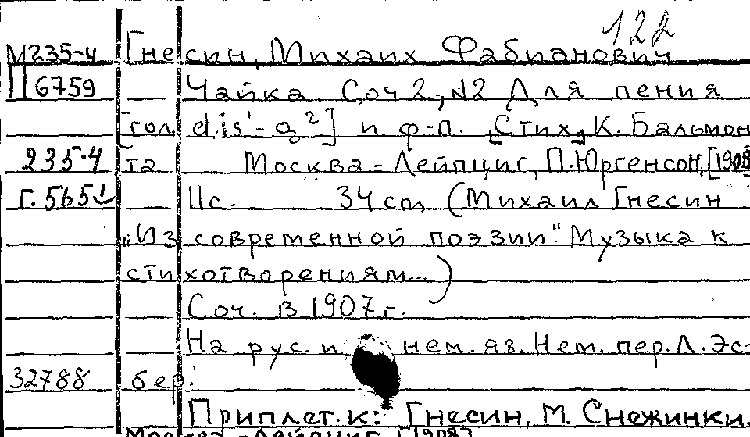 122
М235-4 Гнесин, Михаил Фабианович
П 6759 Чайка Соч 2, №2 Для пения
[гол dis'-g²] и ф-п. [Стих] К. Бальмон
235-4 та Москва-Лейпциг, П. Юргенсон, [1908
Г. 565 11с. 34 см (Михаил Гнесин
"Из современной поэзии" Музыка к
стихотворениям...)
Соч. в 1907 г.
На рус. и нем. яз. Нем. пер. Л. Эс-
32788 бер.
Приплет. к: Гнесин, М. Снежинки
Москва-Лейпциг [1908]